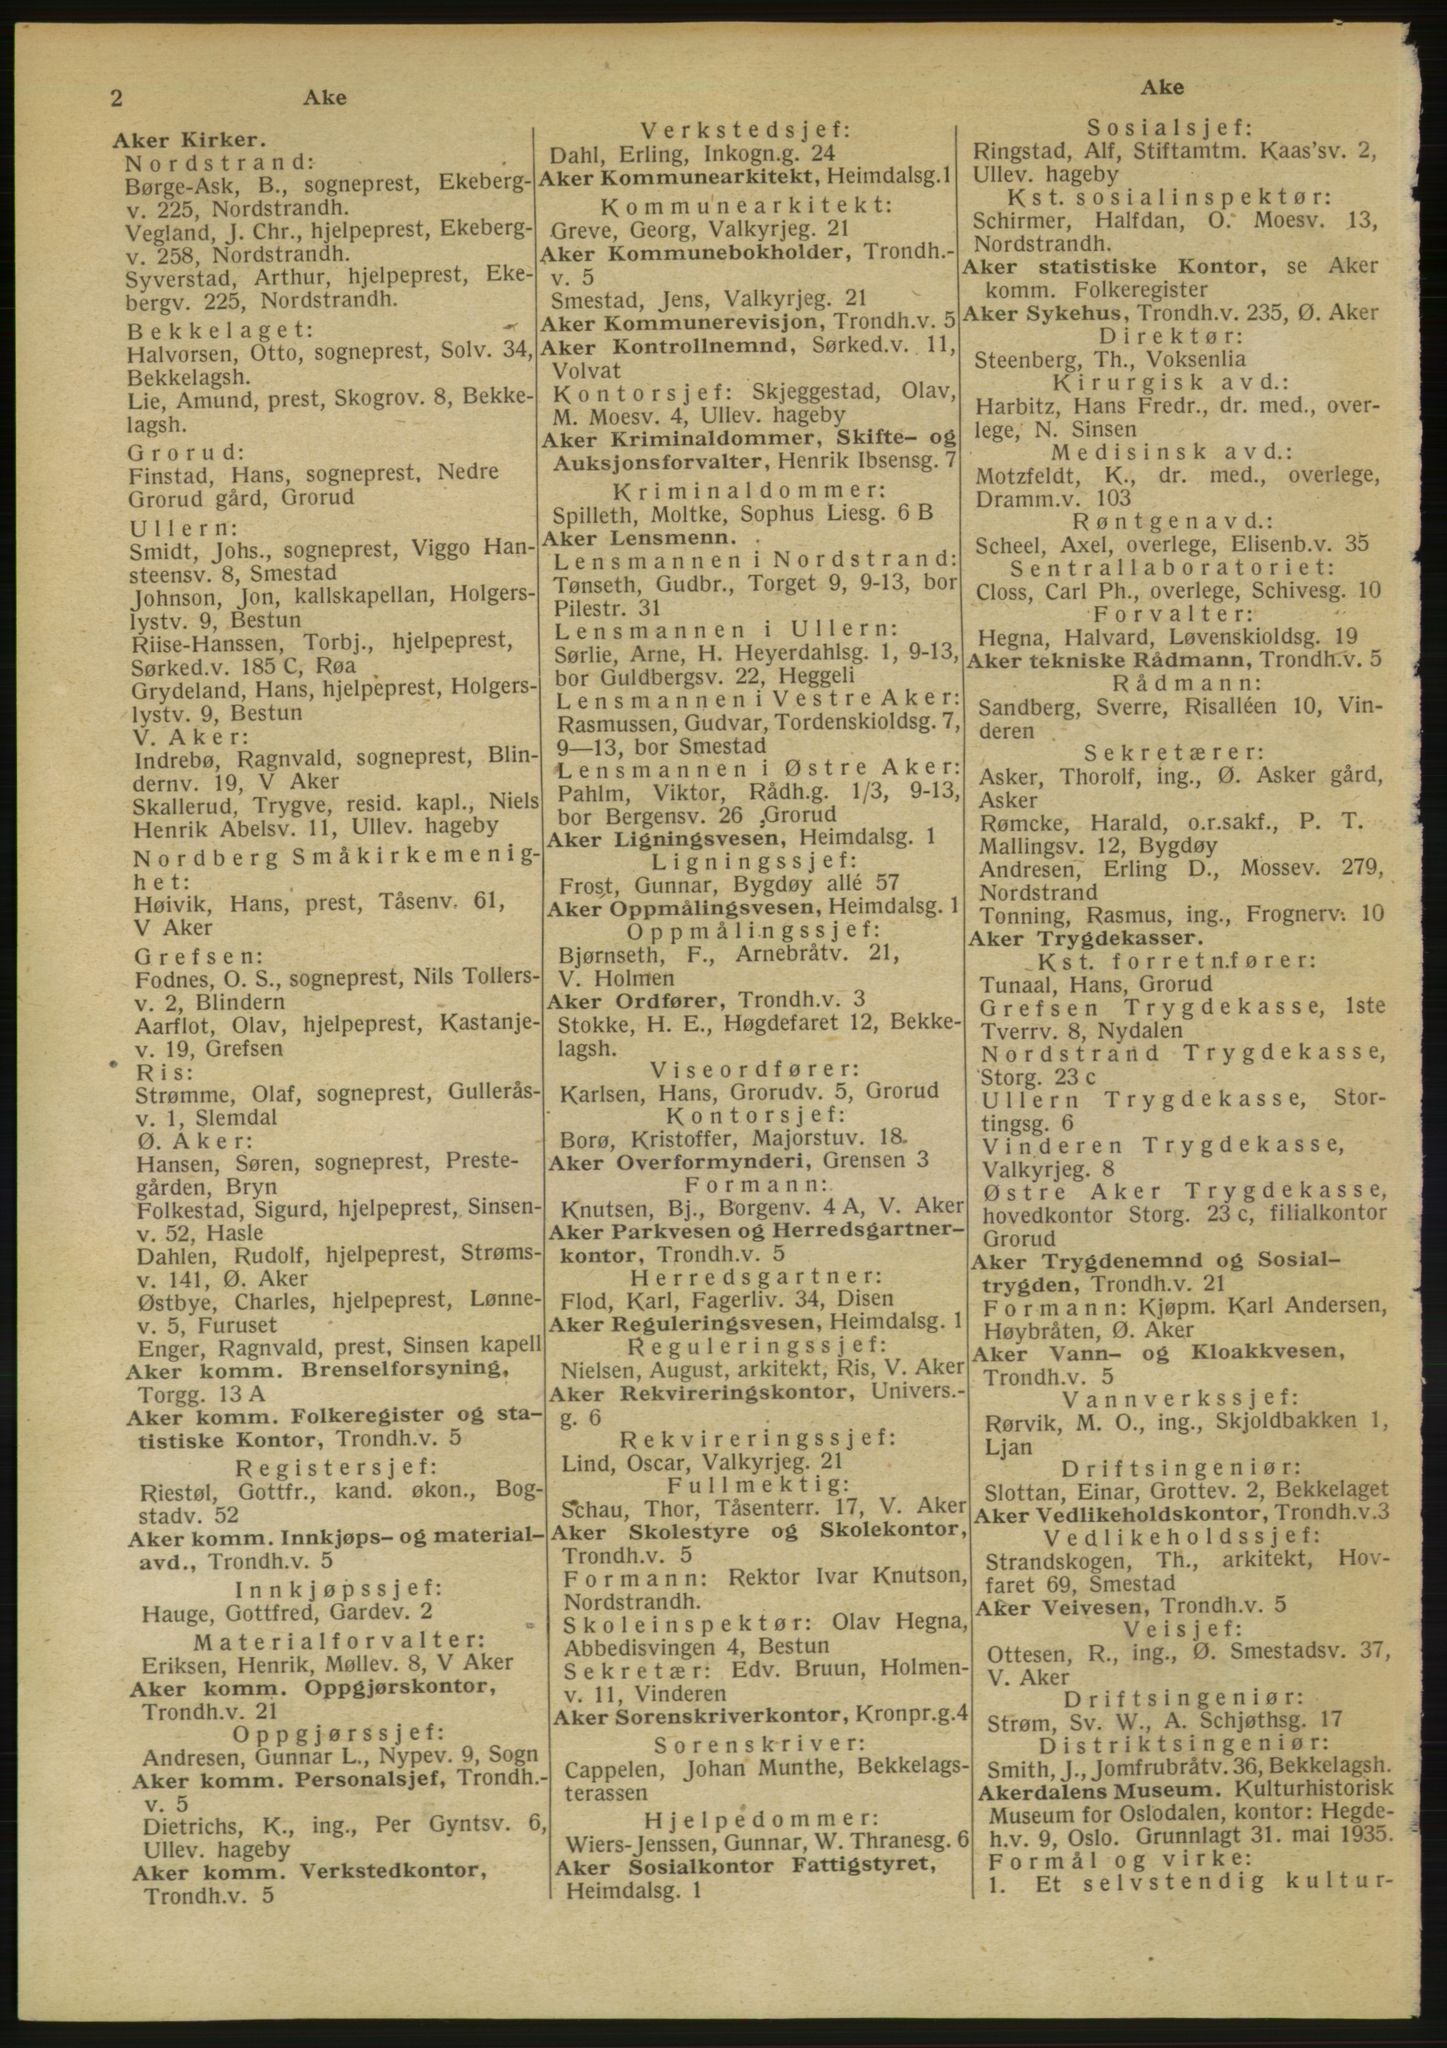 2
Ake
Ake
Aker Kirker.
Nordstrand:
Børge-Ask, B., sogneprest, Ekeberg-
v. 225, Nordstrandh.
Vegland, J. Chr., hjelpeprest, Ekeberg-
v. 258, Nordstrandh.
Syverstad, Arthur, hjelpeprest, Eke-
bergv. 225, Nordstrandh.
Bekkelaget:
Halvorsen, Otto, sogneprest, Solv. 34,
Bekkelagsh.
Lie, Amund, prest, Skogrov. 8, Bekke-
lagsh.
Grorud:
Finstad, Hans, sogneprest, Nedre
Grorud gård, Grorud
Ullern:
Smidt, Johs., sogneprest, Viggo Han-
steensv. 8, Smestad
Johnson, Jon, kallskapellan, Holgers-
lystv. 9, Bestun
Riise-Hanssen, Torbj., hjelpeprest,
Sørked.v. 185 C, Røa
Grydeland, Hans, hjelpeprest, Holgers-
lystv. 9, Bestun
V. Aker:
Indrebø, Ragnvald, sogneprest, Blin-
dernv. 19, V Aker
Skallerud, Trygve, resid. kapl., Niels
Henrik Abelsv. 11, Ullev. hageby
Nordberg Småkirkemenig-
het:
Høivik, Hans, prest, Tåsenv. 61,
V Aker
Grefsen:
Fodnes, O. S., sogneprest, Nils Tollers-
v. 2, Blindern
Aarflot, Olav, hjelpeprest, Kastanje-
v. 19, Grefsen
Ris:
Strømme, Olaf, sogneprest, Gullerås-
v. 1, Slemdal
Ø. Aker:
Hansen, Søren, sogneprest, Preste-
gården, Bryn
Folkestad, Sigurd, hjelpeprest, Sinsen-
v. 52, Hasle
Dahlen, Rudolf, hjelpeprest, Strøms-
v. 141, Ø. Aker
Østbye, Charles, hjelpeprest, Lønne-
v. 5, Furuset
Enger, Ragnvald, prest, Sinsen kapell
Aker komm. Brenselforsyning,
Torgg. 13 A
Aker komm. Folkeregister og sta-
tistiske Kontor, Trondh.v. 5
Registersjef:
Riestøl, Gottfr., kand. økon., Bog-
stadv. 52
Aker komm. Innkjøps- og material-
avd., Trondh.v. 5
Innkjøpssjef:
Hauge, Gottfred, Gardev. 2
Materialforvalter:
Eriksen, Henrik, Møllev. 8, V Aker
Aker komm. Oppgjørskontor,
Trondh.v. 21
Oppgjørssjef:
Andresen, Gunnar L., Nypev. 9, Sogn
Aker komm. Personalsjef, Trondh.-
v. 5
Dietrichs, K., ing., Per Gyntsv. 6,
Ullev. hageby
Aker komm. Verkstedkontor,
Trondh.v. 5
Verkstedsjef:
Dahl, Erling, Inkogn.g. 24
Aker Kommunearkitekt, Heimdalsg. 1
Kommunearkitekt:
Greve, Georg, Valkyrjeg. 21
Aker Kommunebokholder, Trondh.-
v. 5
Smestad, Jens, Valkyrjeg. 21
Aker Kommunerevisjon, Trondh.v. 5
Aker Kontrollnemnd, Sørked.v. 11,
Volvat
Kontorsjef: Skjeggestad, Olav,
M. Moesv. 4, Ullev. hageby
Aker Kriminaldommer, Skifte- og
Auksjonsforvalter, Henrik Ibsensg. 7
Kriminaldommer:
Spilleth, Moltke, Sophus Liesg. 6 B
Aker Lensmenn.
Lensmannen i Nordstrand:
Tønseth, Gudbr., Torget 9, 9-13, bor
Pilestr. 31
Lensmannen i Ullern:
Sørlie, Arne, H. Heyerdahlsg. 1, 9-13,
bor Guldbergsv. 22, Heggeli
Lensmannen i Vestre Aker:
Rasmussen, Gudvar, Tordenskioldsg. 7,
9—13, bor Smestad
Lensmannen i Østre Aker:
Pahlm, Viktor, Rådh.g. 1/3, 9-13,
bor Bergensv. 26, Grorud
Aker Ligningsvesen, Heimdalsg. 1
Ligningssjef:
Frost, Gunnar, Bygdøy allé 57
Aker Oppmålingsvesen, Heimdalsg. 1
Oppmålingssjef:
Bjørnseth, F., Arnebråtv. 21,
V. Holmen
Aker Ordfører, Trondh.v. 3
Stokke, H. E., Høgdefaret 12, Bekke-
lagsh.
Viseordfører:
Karlsen, Hans, Grorudv. 5, Grorud
Kontorsjef:
Borø, Kristoffer, Majorstuv. 18.
Aker Overformynderi, Grensen 3
Formann:
Knutsen, Bj., Borgenv. 4 A, V. Aker
Aker Parkvesen og Herredsgartner-
kontor, Trondh.v. 5
Herredsgartner:
Flod, Karl, Fagerliv. 34, Disen
Aker Reguleringsvesen, Heimdalsg. 1
Reguleringssjef:
Nielsen, August, arkitekt, Ris, V. Aker
Aker Rekvireringskontor, Univers.-
g. 6
Rekvireringssjef:
Lind, Oscar, Valkyrjeg. 21
Fullmektig:
Schau, Thor, Tåsenterr. 17, V. Aker
Aker Skolestyre og Skolekontor,
Trondh.v. 5
Formann: Rektor Ivar Knutson,
Nordstrandh.
Skoleinspektør: Olav Hegna,
Abbedisvingen 4, Bestun
Sekretær: Edv. Bruun, Holmen-
v. 11, Vinderen
Aker Sorenskriverkontor, Kronpr.g.4
Sorenskriver:
Cappelen, Johan Munthe, Bekkelags-
terassen
Hjelpedommer:
Wiers-Jenssen, Gunnar, W. Thranesg. 6
Aker Sosialkontor Fattigstyret,
Heimdalsg. 1
Sosialsjef:
Ringstad, Alf, Stiftamtm. Kaas'sv. 2,
Ullev. hageby
Kst. sosialinspektør:
Schirmer, Halfdan, O. Moesv. 13,
Nordstrandh.
Aker statistiske Kontor, se Aker
komm. Folkeregister
Aker Sykehus, Trondh.v. 235, Ø. Aker
Direktør:
Steenberg, Th., Voksenlia
Kirurgisk avd.:
Harbitz, Hans Fredr., dr. med., over-
lege, N. Sinsen
Medisinsk avd.:
Motzfeldt, K., dr. med., overlege,
Dramm.v. 103
Røntgenavd.:
Scheel, Axel, overlege, Elisenb.v. 35
Sentrallaboratoriet:
Closs, Carl Ph., overlege, Schivesg. 10
Forvalter:
Hegna, Halvard, Løvenskioldsg. 19
Aker tekniske Rådmann, Trondh.v. 5
Rådmann:
Sandberg, Sverre, Risalléen 10, Vin-
deren
Sekretærer:
Asker, Thorolf, ing., Ø. Asker gård,
Asker
Rømcke, Harald, o.r.sakf., P. T.
Mallingsv. 12, Bygdøy
Andresen, Erling D., Mossev. 279,
Nordstrand
Tønning, Rasmus, ing., Frognerv. 10
Aker Trygdekasser.
Kst. forretn.fører:
Tunaal, Hans, Grorud
Grefsen Trygdekasse, 1ste
Tverrv. 8, Nydalen
Nordstrand Trygdekasse,
Storg. 23 c
Ullern Trygdekasse, Stor-
tingsg. 6
Vinderen Trygdekasse,
Valkyrjeg. 8
Østre Aker Trygdekasse,
hovedkontor Storg. 23 c, filialkontor
Grorud
Aker Trygdenemnd og Sosial-
trygden, Trondh.v. 21
Formann: Kjøpm. Karl Andersen,
Høybråten, Ø. Aker
Aker Vann- og Kloakkvesen,
Trondh.v. 5
Vannverkssjef:
Rørvik, M. O., ing., Skjoldbakken 1,
Ljan
Driftsingeniør:
Slottan, Einar, Grottev. 2, Bekkelaget
Aker Vedlikeholdskontor, Trondh.v.3
Vedlikeholdssjef:
Strandskogen, Th., arkitekt, Hov-
faret 69, Smestad
Aker Veivesen, Trondh.v. 5
Veisjef:
Ottesen, R., ing., Ø. Smestadsv. 37,
V. Aker
Driftsingeniør:
Strøm, Sv. W., A. Schjøthsg. 17
Distriktsingeniør:
Smith, J., Jomfrubråtv. 36, Bekkelagsh.
Akerdalens Museum. Kulturhistorisk
Museum for Oslodalen, kontor: Hegde-
h.v. 9, Oslo. Grunnlagt 31. mai 1935.
Formål og virke:
1. Et selvstendig kultur-